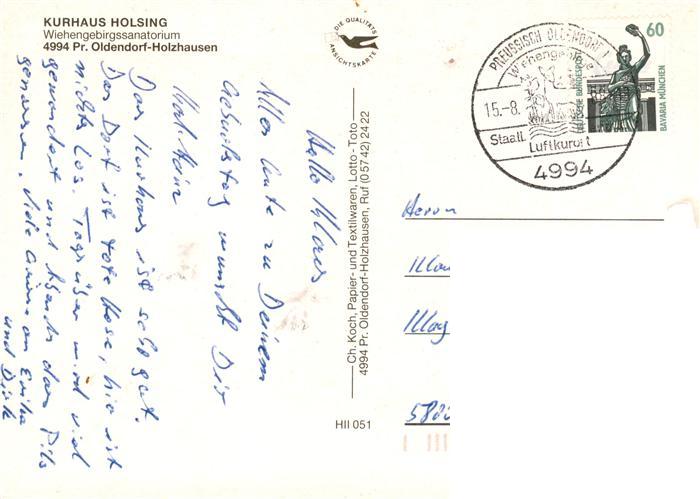 KURHAUS HOLSING
Wiehengebirgssanatorium
4994 Pr. Oldendorf-Holzhausen
DIE QUALITÄTS
ANSICHTSKARTE
Hallo Klaus
Alles Gute zu Deinem
Geburtstag wünscht Dir
Karl-Heinz
Das Kurhaus ist sehr gut.
Das Dorf ist tote Hose, hier ist
nichts los. Tagsüber wird viel
gewandert und Abends das Pils
genossen. Viele Grüsse an Erika
und Dirk
Ch. Koch, Papier- und Textilwaren, Lotto-Toto
4994 Pr. Oldendorf-Holzhausen, Ruf (0 57 42) 24 22
HII 051
PREUSSISCH OLDENDORF 1
Wiehengebirge
15.-8.
Staatl.
Luftkurort
4994
60
DEUTSCHE BUNDESPOST
BAVARIA MÜNCHEN
Herrn
Klau